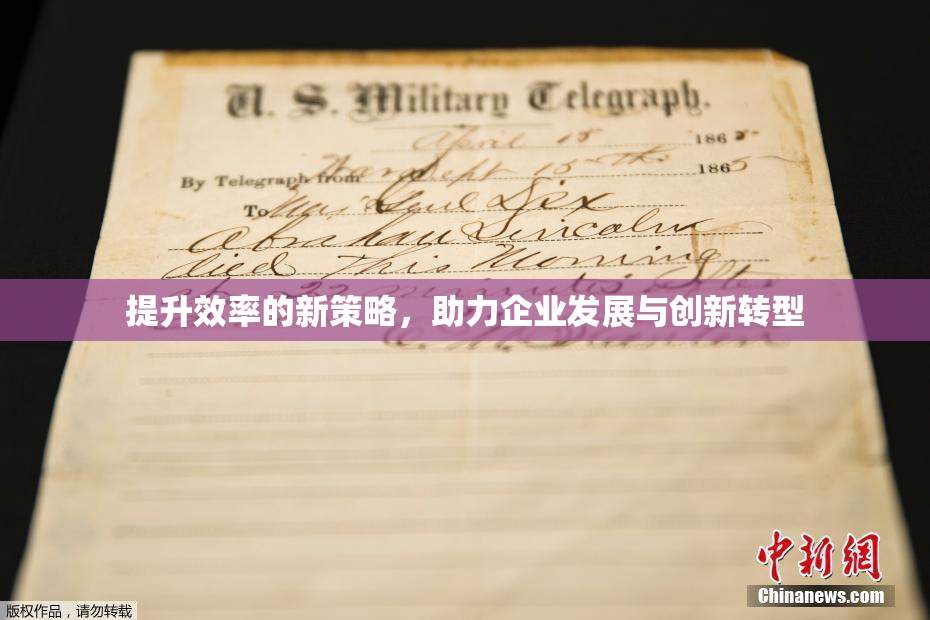 U. S. Military Telegraph.
April 15 1865
By Telegraph from War Dept 15th 1865
To Maj Genl Dix
Abraham Lincoln
died This Morning
at 22 minutes after
提升效率的新策略，助力企业发展与创新转型
E. M. Stanton
中新网
Chinanews.com
版权作品，请勿转载